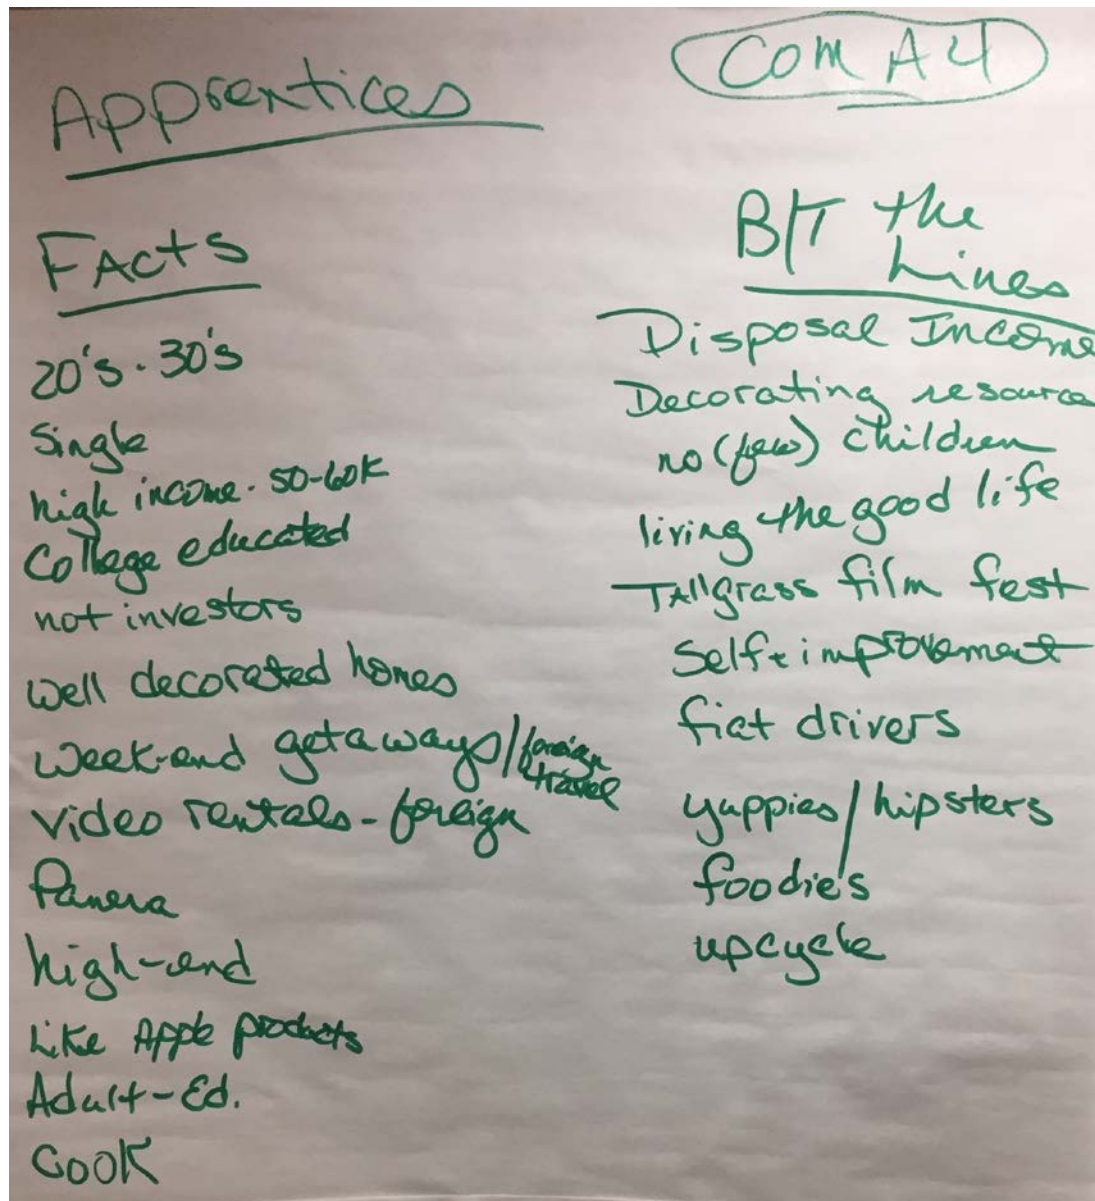 Apprentices
Com A4
Facts
20's - 30's
Single
high income - 50-60K
College educated
not investors
well decorated homes
week-end getaways/foreign travel
video rentals - foreign
Panera
high-end
Like Apple products
Adult-Ed.
Cook
B/T the
Lines
Disposal Income
Decorating resource
no (few) children
living the good life
Tallgrass film fest
Self-improvement
fiat drivers
yuppies/hipsters
foodies
upcycle